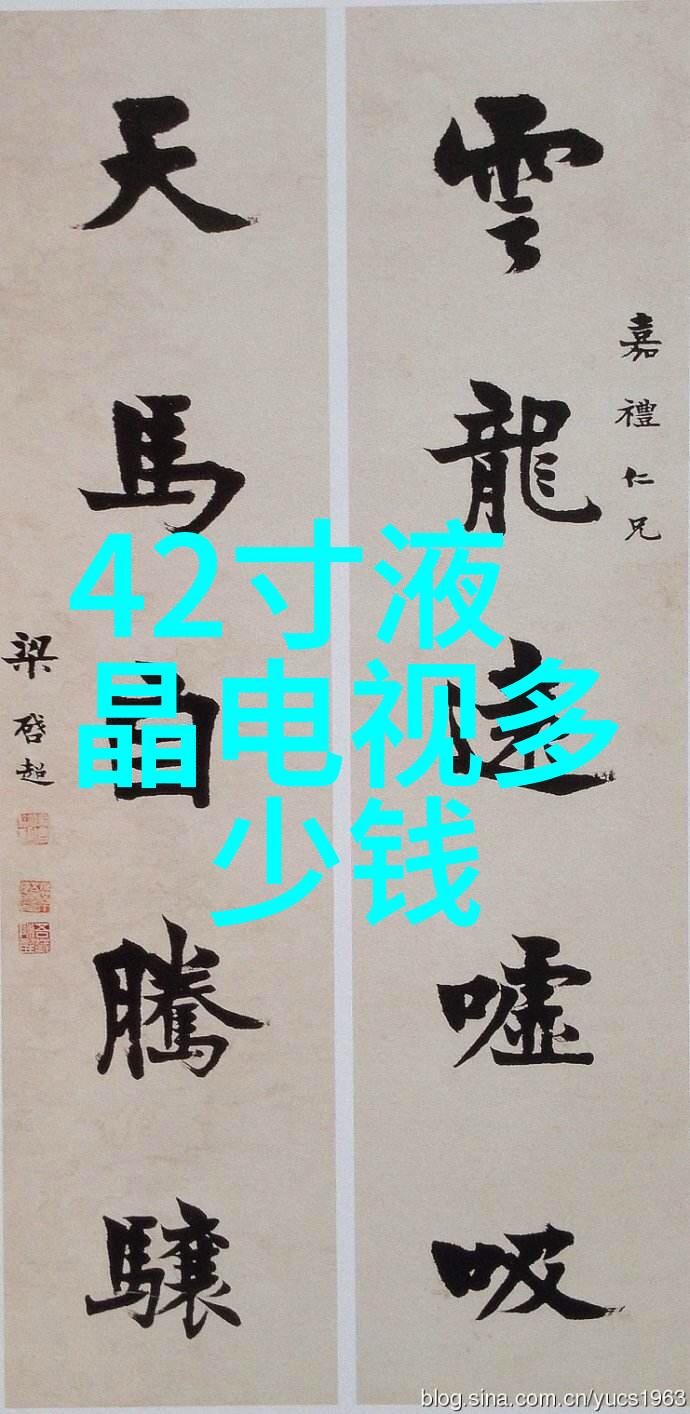 嘉禮仁兄
雲龍遠噓吸
天馬自騰驤
梁啓超
42寸液
晶电视多
少钱
blog.sina.com.cn/yucs1963